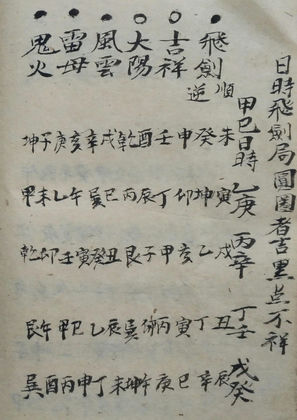 日時飛劍局圓圈者吉黑点不祥
甲己日時 乙庚 丙辛 丁壬 戊癸
飛劍 順逆
吉祥
大陽
風雲
雷母
鬼火
未癸申壬酉乾戌辛亥庚子坤
寅坤卯丁辰丙巳巽午乙未甲
戌乙亥甲子艮丑癸寅壬卯乾
丑丁寅丙卯巽辰乙巳甲午艮
辰辛巳庚午坤未丁申丙酉巽